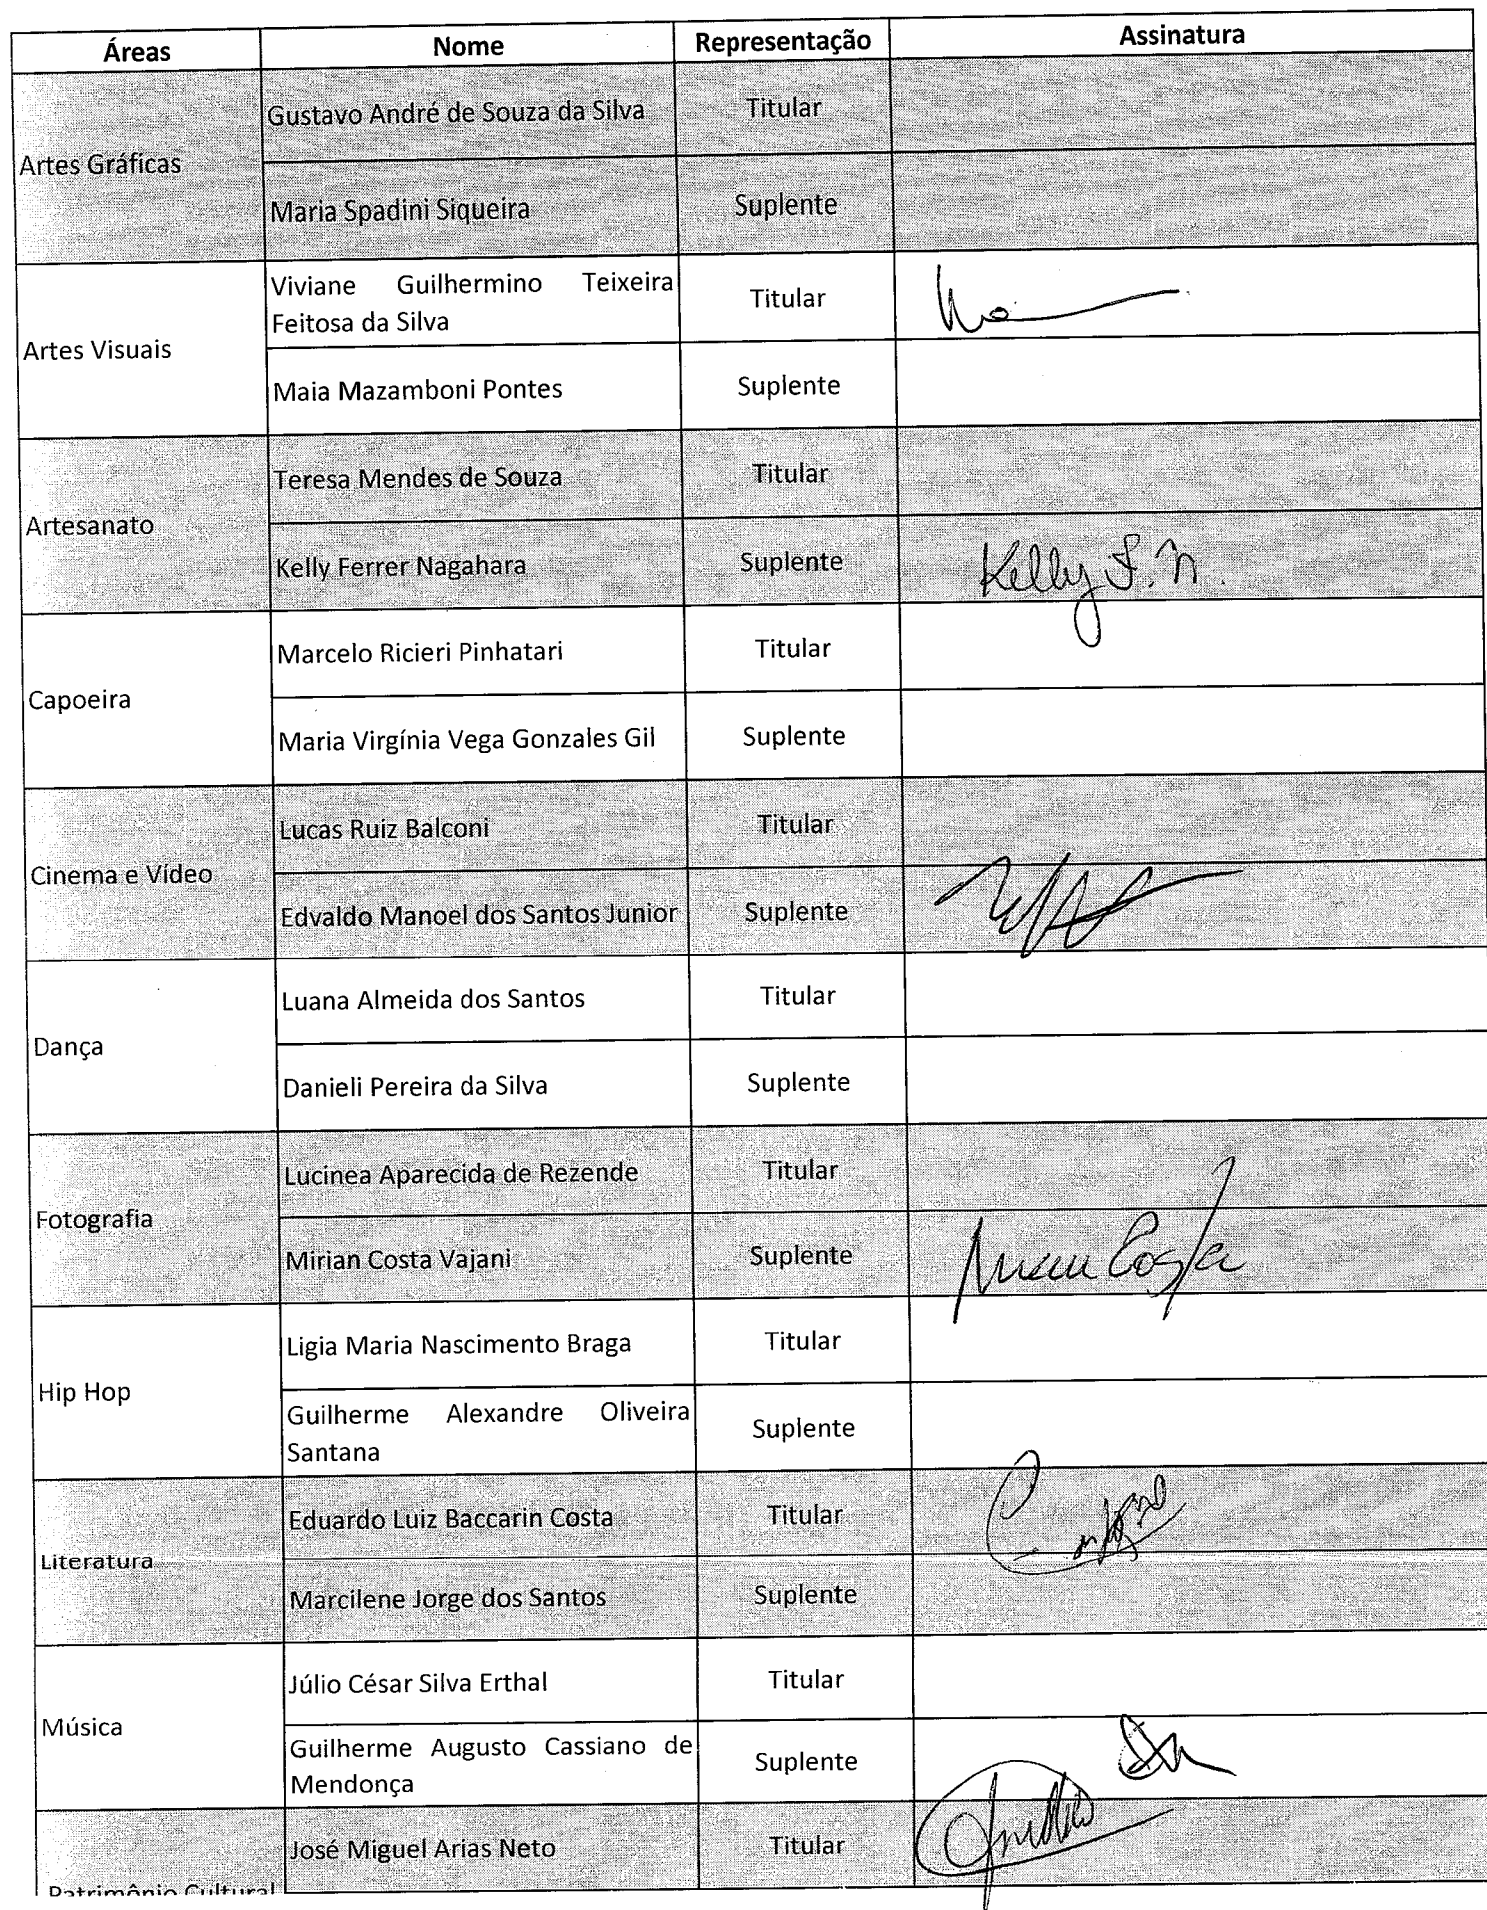 Áreas Nome Representação Assinatura
Artes Gráficas
Gustavo André de Souza da Silva Titular
Maria Spadini Siqueira Suplente
Artes Visuais
Viviane Guilhermino Teixeira
Feitosa da Silva
Titular
Maia Mazamboni Pontes Suplente
Artesanato
Teresa Mendes de Souza Titular
Kelly Ferrer Nagahara Suplente Kelly F. N.
Capoeira
Marcelo Ricieri Pinhatari Titular
Maria Virgínia Vega Gonzales Gil Suplente
Cinema e Vídeo
Lucas Ruiz Balconi Titular
Edvaldo Manoel dos Santos Junior Suplente
Dança
Luana Almeida dos Santos Titular
Danieli Pereira da Silva Suplente
Fotografia
Lucinea Aparecida de Rezende Titular
Mirian Costa Vajani Suplente Mirian Costa
Hip Hop
Ligia Maria Nascimento Braga Titular
Guilherme Alexandre Oliveira
Santana
Suplente
Literatura
Eduardo Luiz Baccarin Costa Titular
Marcilene Jorge dos Santos Suplente
Música
Júlio César Silva Erthal Titular
Guilherme Augusto Cassiano de
Mendonça
Suplente
Patrimônio Cultural
José Miguel Arias Neto Titular